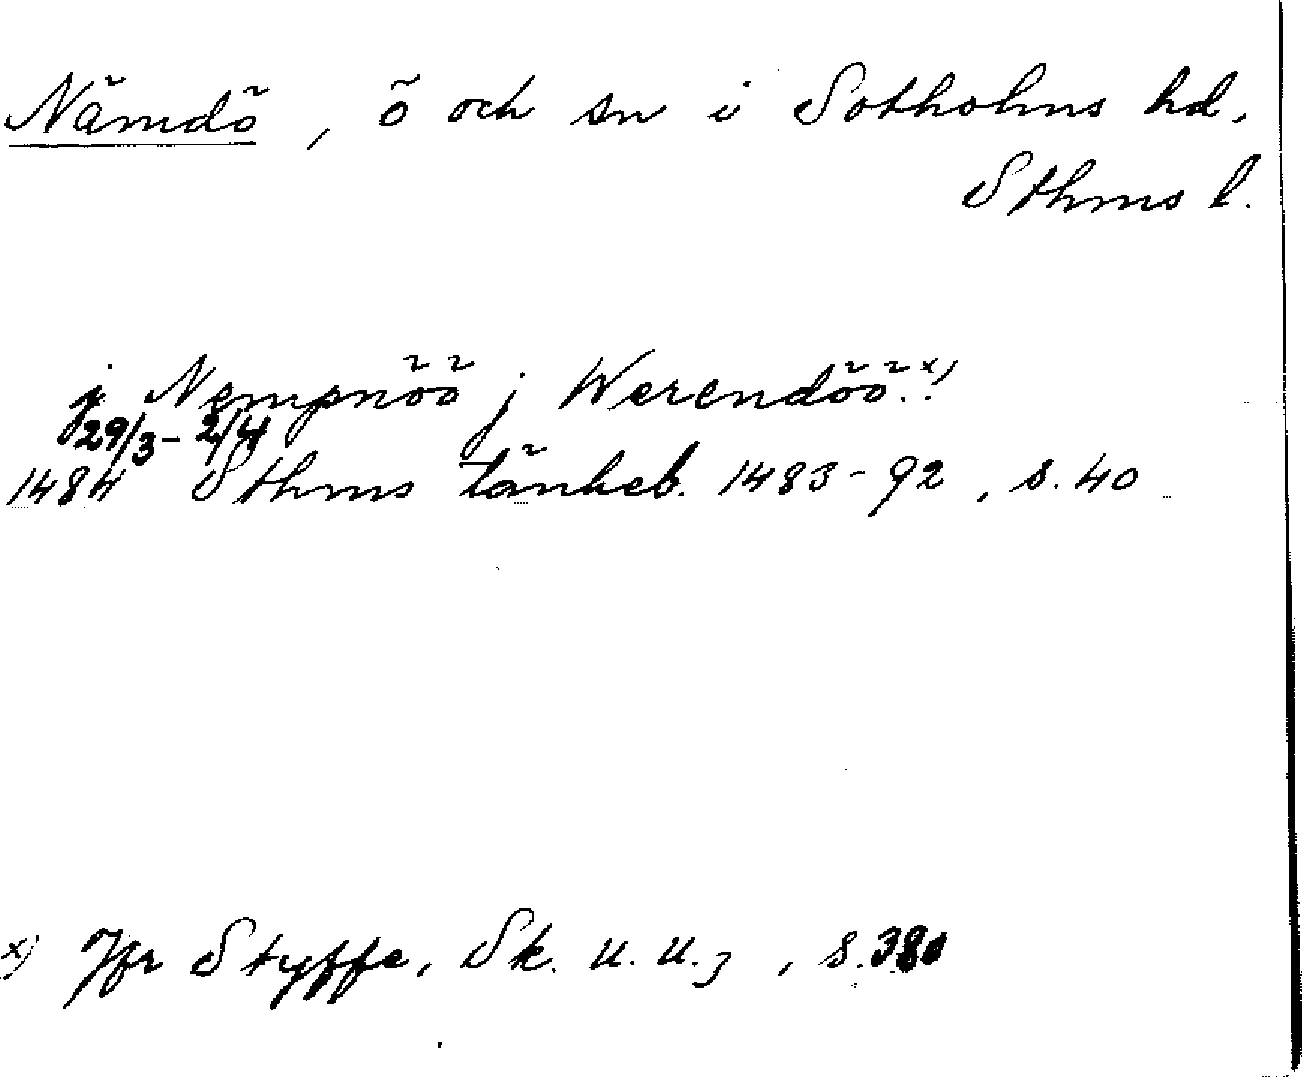 Nämdö, ö och sn i Sotholms hd,
Sthms l.
j Nempnöö j Werendöö.x)
29/3 - 2/4
1484 Sthms tänkeb. 1483-92, s. 40
x) Jfr Styffe, Sk. u. u.3, s. 380